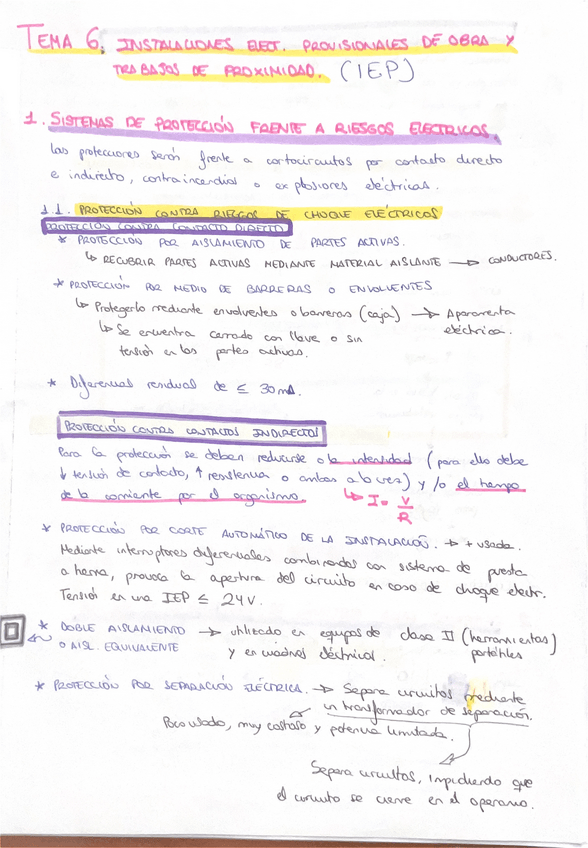 TEMA 6. INSTALACIONES ELECT. PROVISIONALES DE OBRA Y
TRABAJOS DE PROXIMIDAD. (IEP)
1. SISTEMAS DE PROTECCIÓN FRENTE A RIESGOS ELECTRICOS.
Las protecciones serán frente a cortocircuitos por contacto directo
e indirecto, contraincendios o explosiones eléctricas.
1.1. PROTECCIÓN CONTRA RIESGOS DE CHOQUE ELÉCTRICOS
PROTECCIÓN CONTRA CONTACTO DIRECTO
* PROTECCIÓN POR AISLAMIENTO DE PARTES ACTIVAS.
↳ RECUBRIR PARTES ACTIVAS MEDIANTE MATERIAL AISLANTE → CONDUCTORES.
* PROTECCIÓN POR MEDIO DE BARRERAS O ENVOLVENTES
↳ Protegerlo mediante envolventes o barreras (caja) → Aparamenta
eléctrica.
↳ Se encuentra cerrado con llave o sin
tensión en las partes activas.
* Diferencial residual de ≤ 30mA.
PROTECCIÓN CONTRA CONTACTOS INDIRECTOS
Para la protección se deben reducirse o la intensidad (para ello debe
↓ tensión de contacto, ↑ resistencia o ambas a la vez) y/o el tiempo
de la corriente por el organismo. ↳ I = V/R
* PROTECCIÓN POR CORTE AUTOMÁTICO DE LA INSTALACIÓN. → + usada.
Mediante interruptores diferenciales combinados con sistema de puesta
a tierra, provoca la apertura del circuito en caso de choque electr.
Tensión en una IEP ≤ 24V.
* DOBLE AISLAMIENTO → utilizado en equipos de clase II (herramientas)
O AISL. EQUIVALENTE y en cuadros eléctricos. portátiles
* PROTECCIÓN POR SEPARACIÓN ELÉCTRICA. → Separa circuitos mediante
un transformador de separación.
Poco usado, muy costoso y potencia limitada.
Separa circuitos, impidiendo que
el circuito se cierre en el operario.